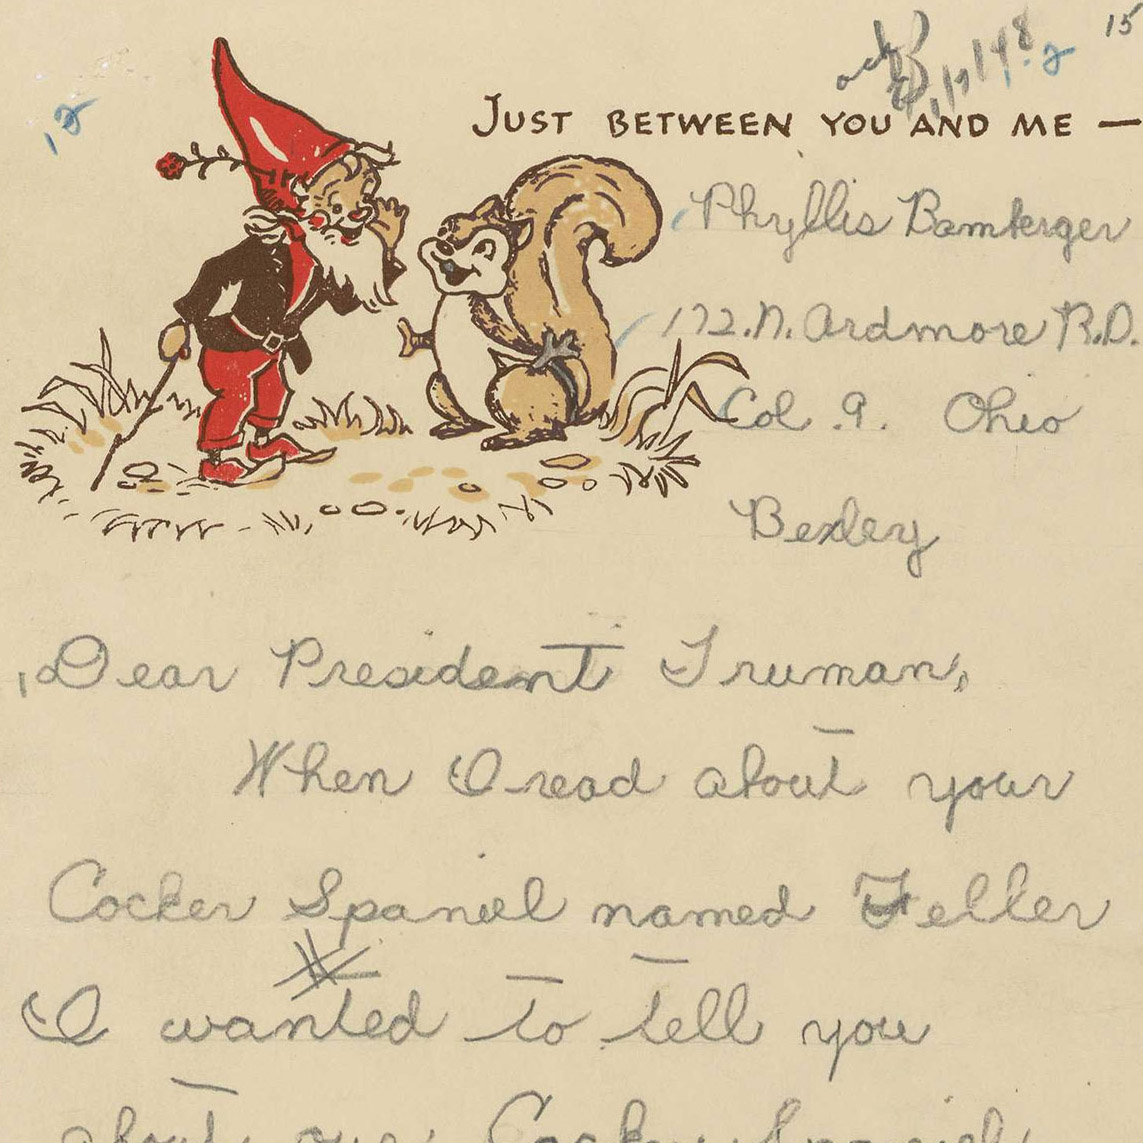 15
ack
1/7/48
12
2
JUST BETWEEN YOU AND ME —
Phyllis Bamberger
172. N. Ardmore R.D.
Col. 9. Ohio
Bexley
Dear President Truman,
When I read about your
Cocker Spaniel named Feller
I wanted to tell you
about our Cocker Spaniel